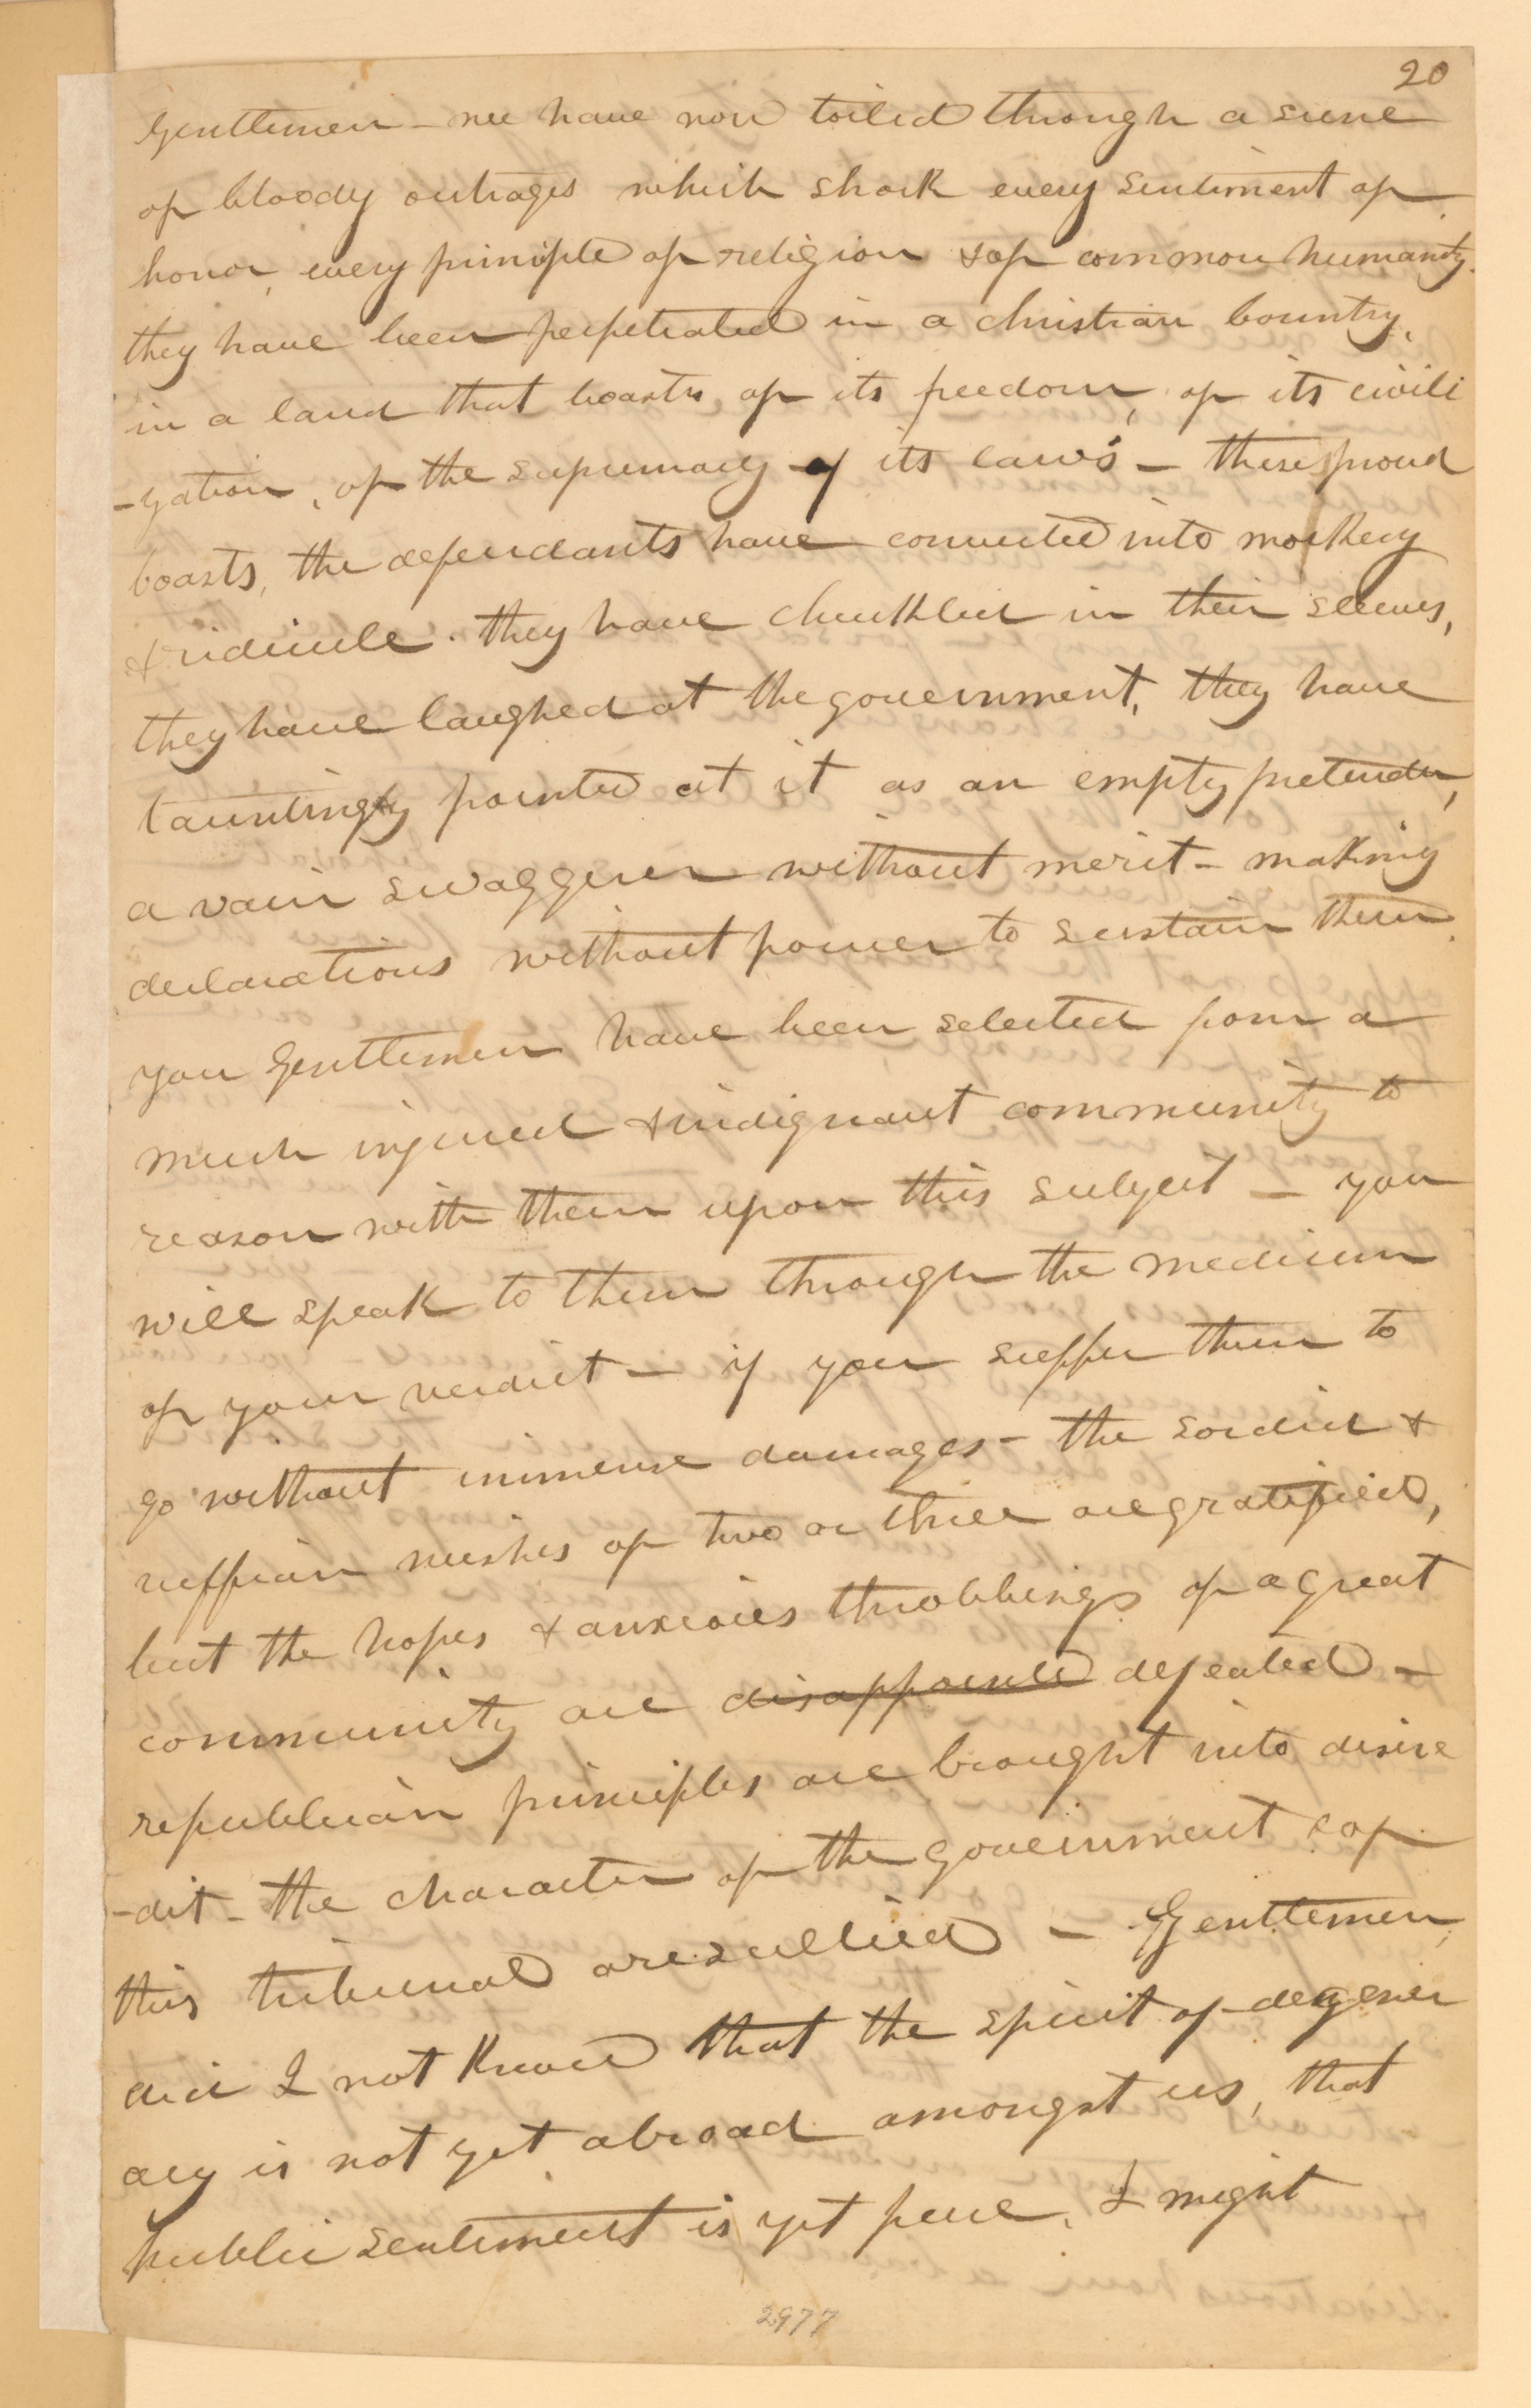 20
Gentlemen - we have now toiled through a scene
of bloody outrages which shock every sentiment of
honor, every principle of religion & of common humanity.
they have been perpetrated in a christian country,
in a land that boasts of its freedom, of its civili
-zation, of the supremacy of its laws - these proud
boasts, the defendants have converted into mockery
& ridicule. they have chuckled in their sleeves,
they have laughed at the government, they have
tauntingly pointed at it as an empty pretender,
a vain swaggerer without merit - making
declarations without power to sustain them.
you Gentlemen have been selected from a
much injured & indignant community to
reason with them upon this subject - you
will speak to them through the medium
of your verdict - if you suffer them to
go without immense damages - the sordid &
ruffian wishes of two or three are gratified,
but the hopes & anxious throbbings of a great
community are disappointed defeated -
republican principles are brought into discre
-dit - the character of the government & of
this tribunal are sullied - Gentlemen,
did I not know that the spirit of degener
acy is not yet abroad amongst us, that
public sentiment is yet pure, I might
2977